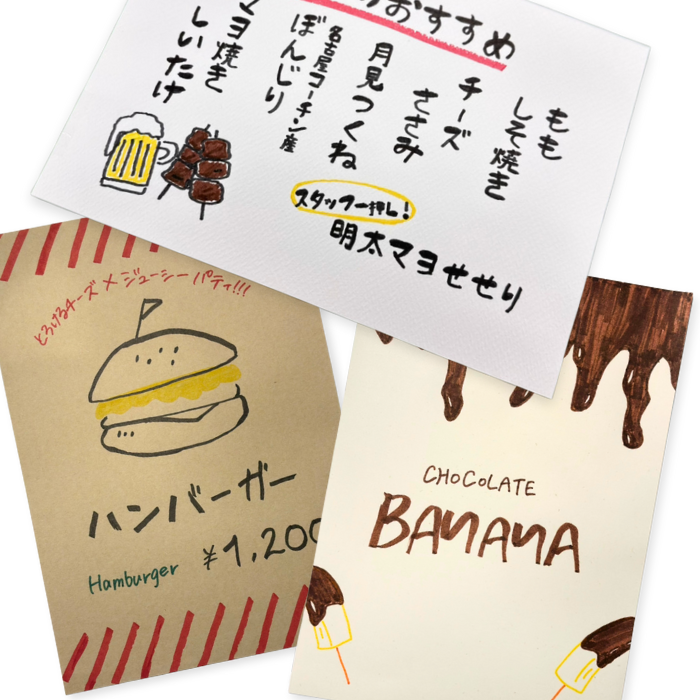 おすすめ
もも
しそ焼き
チーズ
ささみ
月見つくね
名古屋コーチン産
ぼんじり
マヨ焼き
しいたけ
スタッフ一押し!
明太マヨせせり
とろけるチーズ×ジューシーパティ!!!
ハンバーガー
Hamburger
¥1,200
CHOCOLATE
BANANA